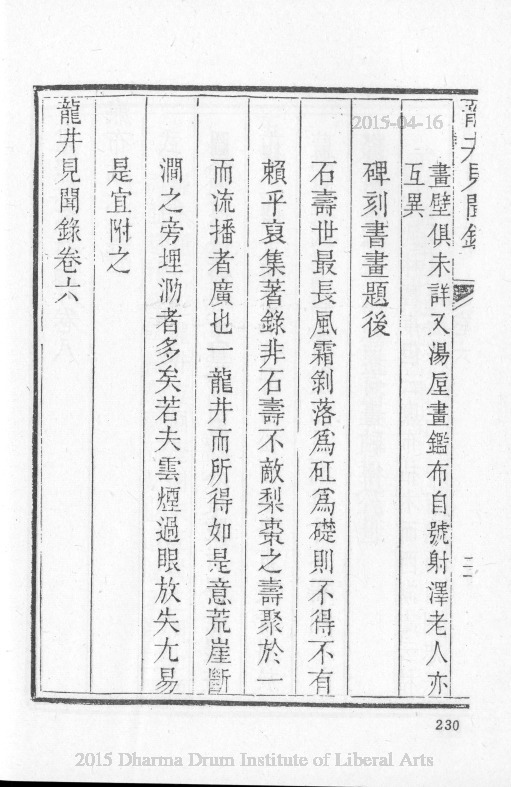 2015-04-16
龍井見聞錄
二一
畫壁俱未詳又湯垕畫鑑布自號射澤老人亦
互異
碑刻書畫題後
石壽世最長風霜剝落爲矼爲礎則不得不有
賴乎裒集著錄非石壽不敵梨棗之壽聚於一
而流播者廣也一龍井而所得如是意荒崖斷
澗之旁埋泐者多矣若夫雲煙過眼放失尢易
是宜附之
龍井見聞錄卷六
230
2015 Dharma Drum Institute of Liberal Arts